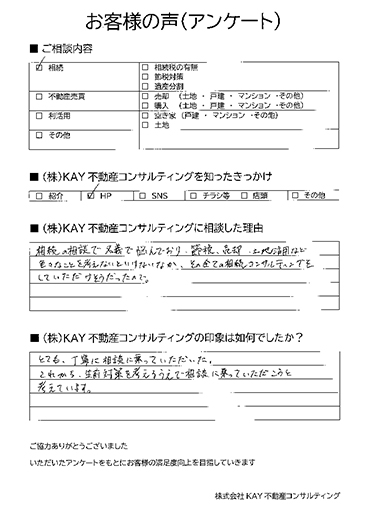 お客様の声（アンケート）
■ ご相談内容
☑ 相続
□ 相続税の有無
□ 節税対策
□ 遺産分割
□ 不動産売買
□ 売却 （土地 ・ 戸建 ・ マンション ・その他）
□ 購入 （土地 ・ 戸建 ・ マンション ・その他）
□ 利活用
□ 空き家（戸建 ・ マンション ・その他）
□ 土地
□ その他
■（株）KAY 不動産コンサルティングを知ったきっかけ
□ 紹介 ☑ HP □ SNS □ チラシ等 □ 店頭 □ その他
■（株）KAY 不動産コンサルティングに相談した理由
相続の相談で 悩んでおり、節税、売却、土地活用など
色々なことを考えないといけないなか、その全ての相続コンサルティングを
していただけそうだったので。
■（株）KAY 不動産コンサルティングの印象は如何でしたか？
とても、丁寧に相談に乗っていただいた。
これから、生前対策を考えるうえで相談に乗っていただこうと
考えています。
ご協力ありがとうございました
いただいたアンケートをもとにお客様の満足度向上を目指していきます
株式会社 KAY 不動産コンサルティング